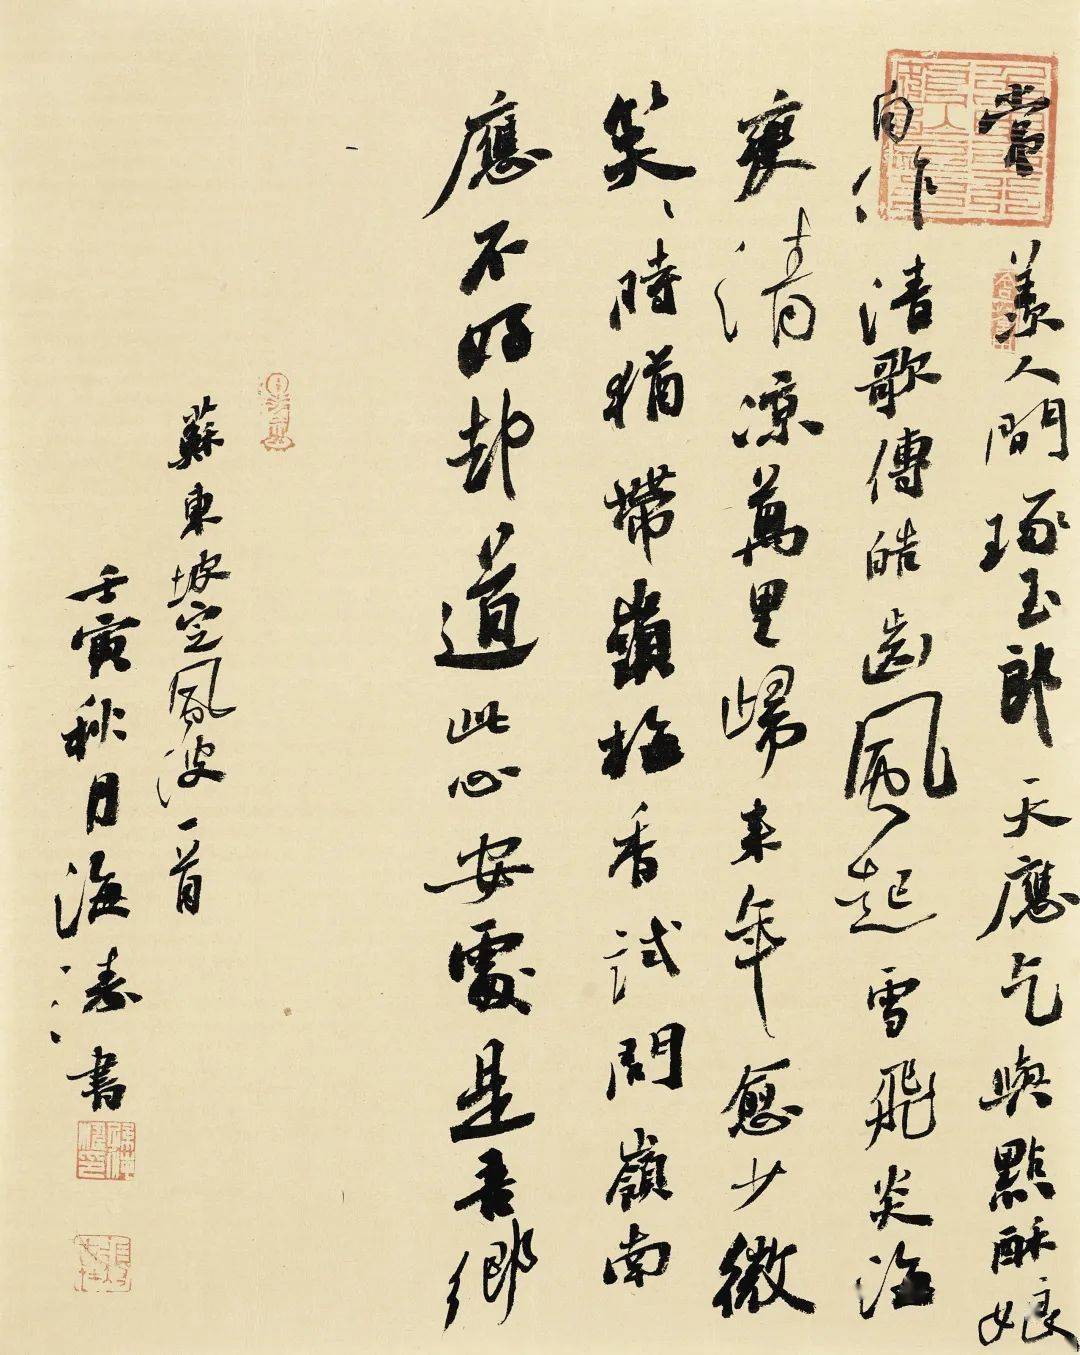 常羨人間琢玉郎天應乞與點酥娘
自作清歌傳皓齒風起雪飛炎海
變清涼萬里歸來年愈少微
笑〻時猶帶嶺梅香試問嶺南
應不好却道此心安處是吾鄉
蘇東坡定風波一首
壬寅秋月海濤書